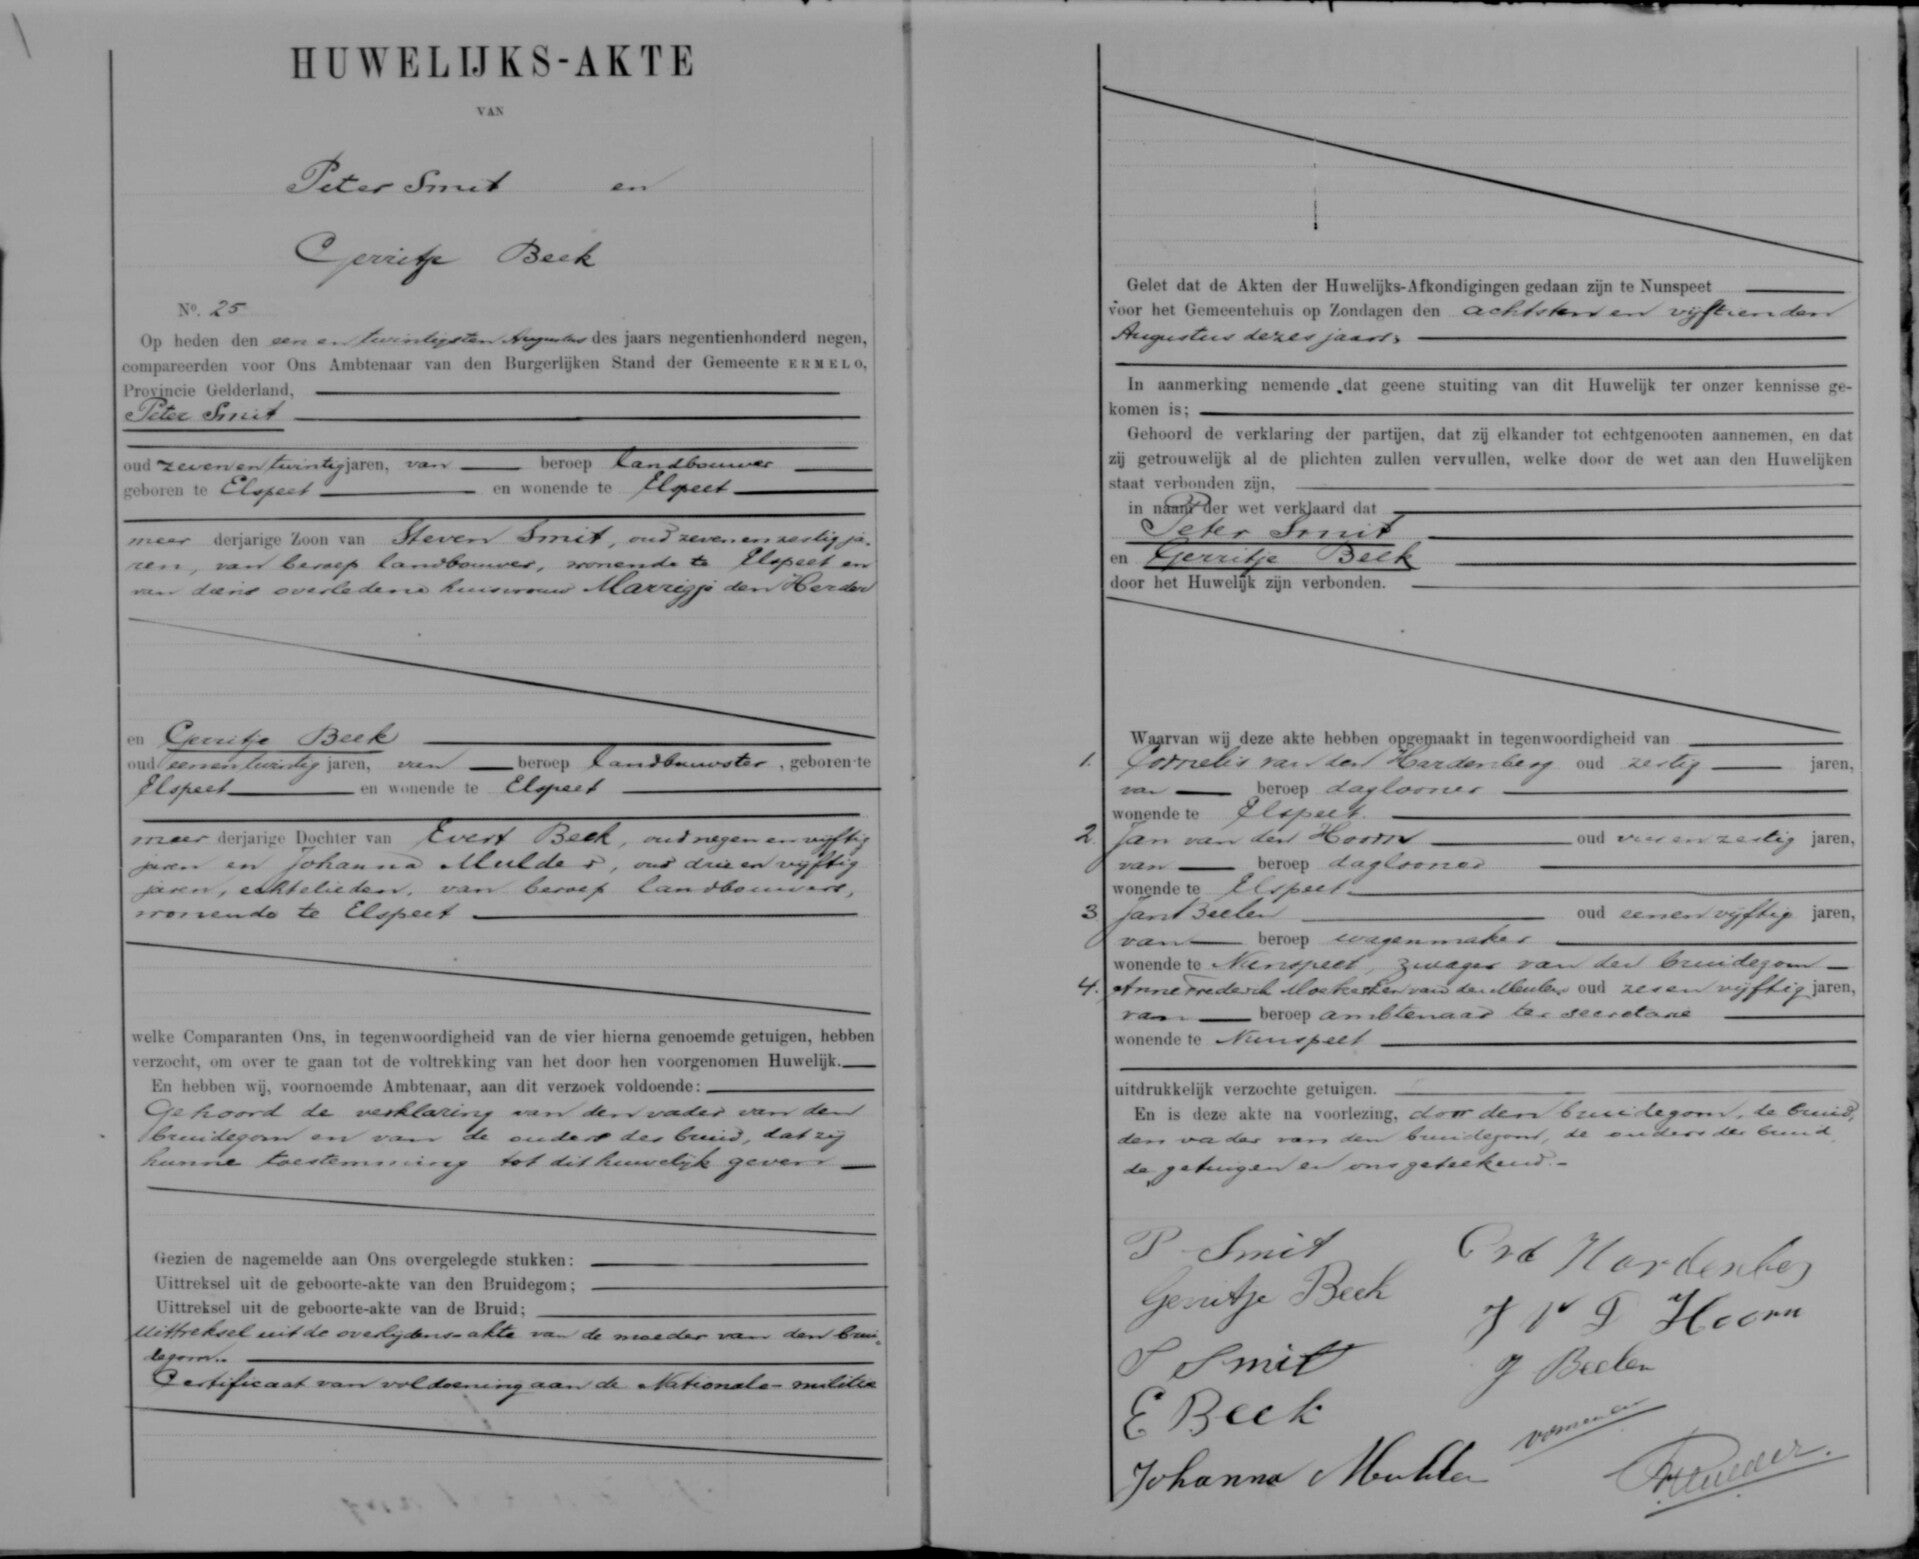 HUWELIJKS-AKTE
VAN
Peter Smit en
Gerritje Beek
No. 25
Op heden den een en twintigsten Augustus des jaars negentienhonderd negen,
compareerden voor Ons Ambtenaar van den Burgerlijken Stand der Gemeente ERMELO,
Provincie Gelderland,
Peter Smit
oud zeven en twintig jaren, van beroep landbouwer
geboren te Elspeet en wonende te Elspeet
meer derjarige Zoon van Steven Smit, oud zeven en zestig ja-
ren, van beroep landbouwer, wonende te Elspeet en
van diens overledene huisvrouw Marrigje den Herder
en Gerritje Beek
oud een en twintig jaren, van beroep landbouwster, geboren te
Elspeet en wonende te Elspeet
meer derjarige Dochter van Evert Beek, oud negen en vijftig
jaren en Johanna Mulder, oud drie en vijftig
jaren, echtelieden, van beroep landbouwers,
wonende te Elspeet
welke Comparanten Ons, in tegenwoordigheid van de vier hierna genoemde getuigen, hebben
verzocht, om over te gaan tot de voltrekking van het door hen voorgenomen Huwelijk.
En hebben wij, voornoemde Ambtenaar, aan dit verzoek voldoende:
Gehoord de verklaring van den vader van den
bruidegom en van de ouders der bruid, dat zij
hunne toestemming tot dit huwelijk geven
Gezien de nagemelde aan Ons overgelegde stukken:
Uittreksel uit de geboorte-akte van den Bruidegom;
Uittreksel uit de geboorte-akte van de Bruid;
Uittreksel uit de overlijdens-akte van de moeder van den brui-
degom.
Certificaat van voldoening aan de Nationale militie
Gelet dat de Akten der Huwelijks-Afkondigingen gedaan zijn te Nunspeet
voor het Gemeentehuis op Zondagen den achtsten en vijftienden
Augustus dezes jaars.
In aanmerking nemende dat geene stuiting van dit Huwelijk ter onzer kennisse ge-
komen is;
Gehoord de verklaring der partijen, dat zij elkander tot echtgenooten aannemen, en dat
zij getrouwelijk al de plichten zullen vervullen, welke door de wet aan den Huwelijken
staat verbonden zijn,
in naam der wet verklaard dat
Peter Smit
en Gerritje Beek
door het Huwelijk zijn verbonden.
Waarvan wij deze akte hebben opgemaakt in tegenwoordigheid van
1. Cornelis van den Hardenberg oud zestig jaren,
van beroep daglooner
wonende te Elspeet.
2. Jan van den Hoorn oud vier en zestig jaren,
van beroep daglooner
wonende te Elspeet
3 Jan Beelen oud een en vijftig jaren,
van beroep wagenmaker
wonende te Nunspeet, zwager van den bruidegom
4. Anne Frederik van der Meulen oud zes en vijftig jaren,
van beroep ambtenaar ter secretarie
wonende te Nunspeet
uitdrukkelijk verzochte getuigen.
En is deze akte na voorlezing, door den bruidegom, de bruid,
den vader van den bruidegom, de ouders der bruid,
de getuigen en ons geteekend.-
P Smit
Gerritje Beek
S Smit
E Beek
Johanna Mulder
C v d Hardenberg
J v D Hoorn
J Beelen